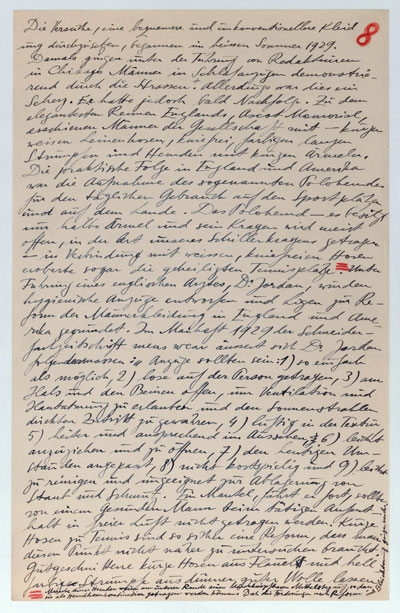 8
Die Versuche, eine bequemere und unkonventionellere Kleid
ung durchzusetzen, begannen im heissen Sommer 1929.
Damals gingen unter der Führung von Redakteuren
in Chicago Männer in Schlafanzügen demonstrie-
rend durch die Strassen. Allerdings war dies ein
Scherz. Er hatte jedoch bald Nachfolge. Zu dem
elegantesten Rennen Englands, Ascot Memorial,
erschienen Männer der Gesellschaft mit kurzen
weissen Leinenhosen, kniefrei, farbigen langen
Strümpfen und Hemden mit kurzen Ärmeln.
Die praktische Folge in England und Amerika
war die Aufnahme des sogenannten Polohemdes
für den täglichen Gebrauch auf den Sportplätzen
und auf dem Lande. Das Polohemd — es besitzt
nur halbe Ärmel und sein Kragen wird meist
offen, in der Art unseres Schillerkragens getragen
— in Verbindung mit weissen, kniefreien Hosen
eroberte sogar die geheiligten Tennisplätze. Unter
Führung eines englischen Arztes, Dr. Jordan, wurden
hygienische Anzüge entworfen und Ligen zur Re-
form der Männerkleidung in England und Ame-
rika gegründet. Im Maiheft 1929 der Schneider-
fachzeitschrift mens wear äussert sich Dr. Jordan
folgendermassen: Anzüge sollten sein: 1) so einfach
als möglich, 2) lose auf der Person getragen, 3) am
Hals und den Beinen offen, um Ventilation und
Hautatmung zu erlauben und den Sonnenstrahlen
direkten Zutritt zu gewähren, 4) luftig in der Textur
5) heiter und ansprechend im Aussehen, 6) leicht
anzuziehen und zu öffnen, 7) den heutigen Um-
ständen angepasst, 8) nicht kostspielig und 9) leicht
zu reinigen und ungeeignet zur Ablagerung von
Staub und Schmutz. Ein Mantel, fährt er fort, sollte
von einem gesunden Mann beim tätigen Aufent-
halt in freier Luft nicht getragen werden. Kurze
Hosen zu Tennis sind so sehr eine Reform, dass man
diesen Punkt nicht näher zu untersuchen braucht.
Gutgeschnittene kurze Hosen aus Flanell und hell
farbige Strümpfe aus dünner guter Wolle lassen